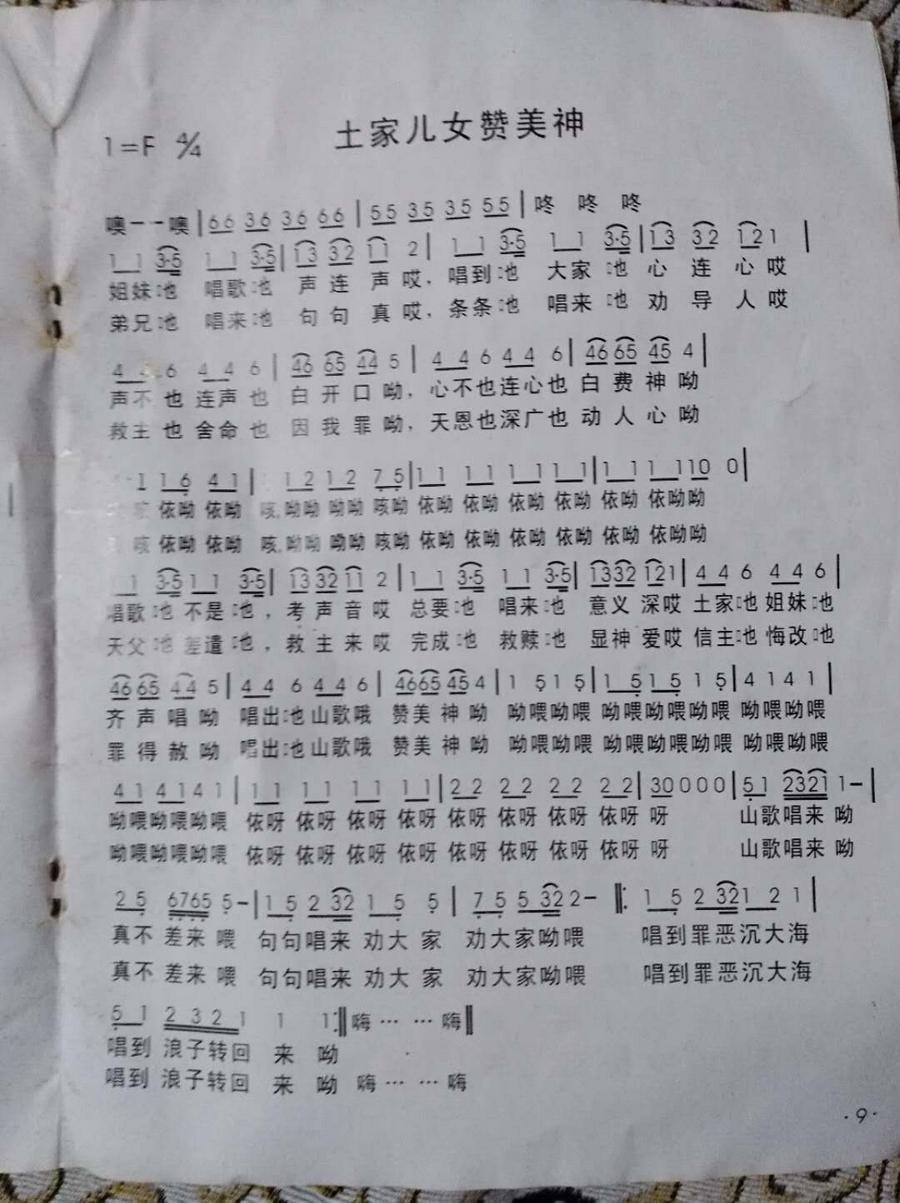 土家儿女赞美神
1=F 4/4
噢一一噢|66 36 36 66|55 35 35 55|咚 咚 咚
11 3·5 11 3·5|13 32 11 2|11 3·5 11 3·5|13 32 121|
姐妹:也 唱歌:也 声 连 声 哎,唱到:也 大家:也 心 连 心 哎
弟兄:也 唱来:也 句 句 真 哎,条条:也 唱来:也 劝 导 人 哎
4 4 6 4 4 6|46 65 44 5|4 4 6 4 4 6|46 65 45 4|
声不也连声也 白开口呦,心不也连心也 白费神呦
救主也舍命也 因我罪呦,天恩也深广也 动人心呦
1 16 41|1212 75|11 11 11 11|11 11 110 0|
咳 依呦 依呦 咳,呦呦 呦呦 咳呦 依呦 依呦 依呦 依呦 依呦 依呦呦
咳 依呦 依呦 咳,呦呦 呦呦 咳呦 依呦 依呦 依呦 依呦 依呦 依呦呦
11 3·5 11 3·5|13 32 11 2|11 3·5 11 3·5|1332 121|44 6 44 6|
唱歌:也 不是:也,考声音哎 总要:也 唱来:也 意义 深哎 土家:也 姐妹:也
天父:也 差遣:也,救主来哎 完成:也 救赎:也 显神 爱哎 信主:也 悔改:也
46 65 44 5|44 6 44 6|4665 45 4|1 5 1 5|1 5 1 5 1 5|4 1 4 1|
齐声唱呦 唱出:也山歌哦 赞美神呦 呦喂呦喂 呦喂呦喂呦喂 呦喂呦喂
罪得赦呦 唱出:也山歌哦 赞美神呦 呦喂呦喂 呦喂呦喂呦喂 呦喂呦喂
41 41 41|11 11 11 11|22 22 22 22|30 0 0 0|51 2321 1-|
呦喂呦喂呦喂 依呀 依呀 依呀 依呀 依呀 依呀 依呀 依呀 呀 山歌唱来 呦
呦喂呦喂呦喂 依呀 依呀 依呀 依呀 依呀 依呀 依呀 依呀 呀 山歌唱来 呦
25 6765 5-|15 2 32 15 5|75 5 32 2-‖:15 2 321 2 1|
真不 差来 喂 句句唱来 劝大 家 劝大家呦喂 唱到罪恶沉大海
真不 差来 喂 句句唱来 劝大 家 劝大家呦喂 唱到罪恶沉大海
51 2321 1 1:‖嗨⋯ ⋯嗨‖
唱到 浪子转回 来 呦
唱到 浪子转回 来 呦 嗨⋯ ⋯嗨
·9·